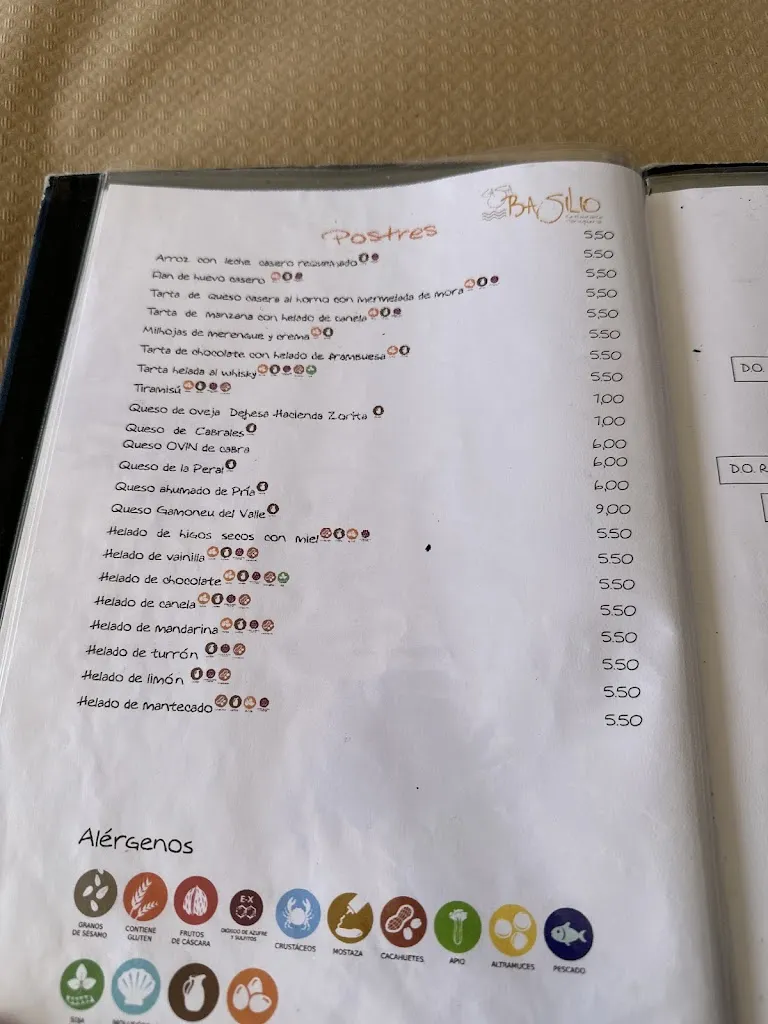 BASILIO
Postres
Arroz con leche casero requemado 5,50
Flan de huevo casero 5,50
Tarta de queso casera al horno con mermelada de mora 5,50
Tarta de manzana con helado de canela 5,50
Milhojas de merengue y crema 5,50
Tarta de chocolate con helado de frambuesa 5.50
Tarta helada al whisky 5.50
Tiramisú 5.50
Queso de oveja Dehesa Hacienda Zorita 7,00
Queso de Cabrales 7,00
Queso OVIN de cabra 6,00
Queso de la Peral 6,00
Queso ahumado de Pría 6,00
Queso Gamoneu del Valle 9,00
Helado de higos secos con miel 5.50
Helado de vainilla 5.50
Helado de chocolate 5.50
Helado de canela 5.50
Helado de mandarina 5.50
Helado de turrón 5.50
Helado de limón 5.50
Helado de mantecado 5.50
D.O.
D.O. R
Alérgenos
GRANOS DE SÉSAMO
CONTIENE GLUTEN
FRUTOS DE CÁSCARA
E-X
DIÓXIDO DE AZUFRE Y SULFITOS
CRUSTÁCEOS
MOSTAZA
CACAHUETES
APIO
ALTRAMUCES
PESCADO
SOJA